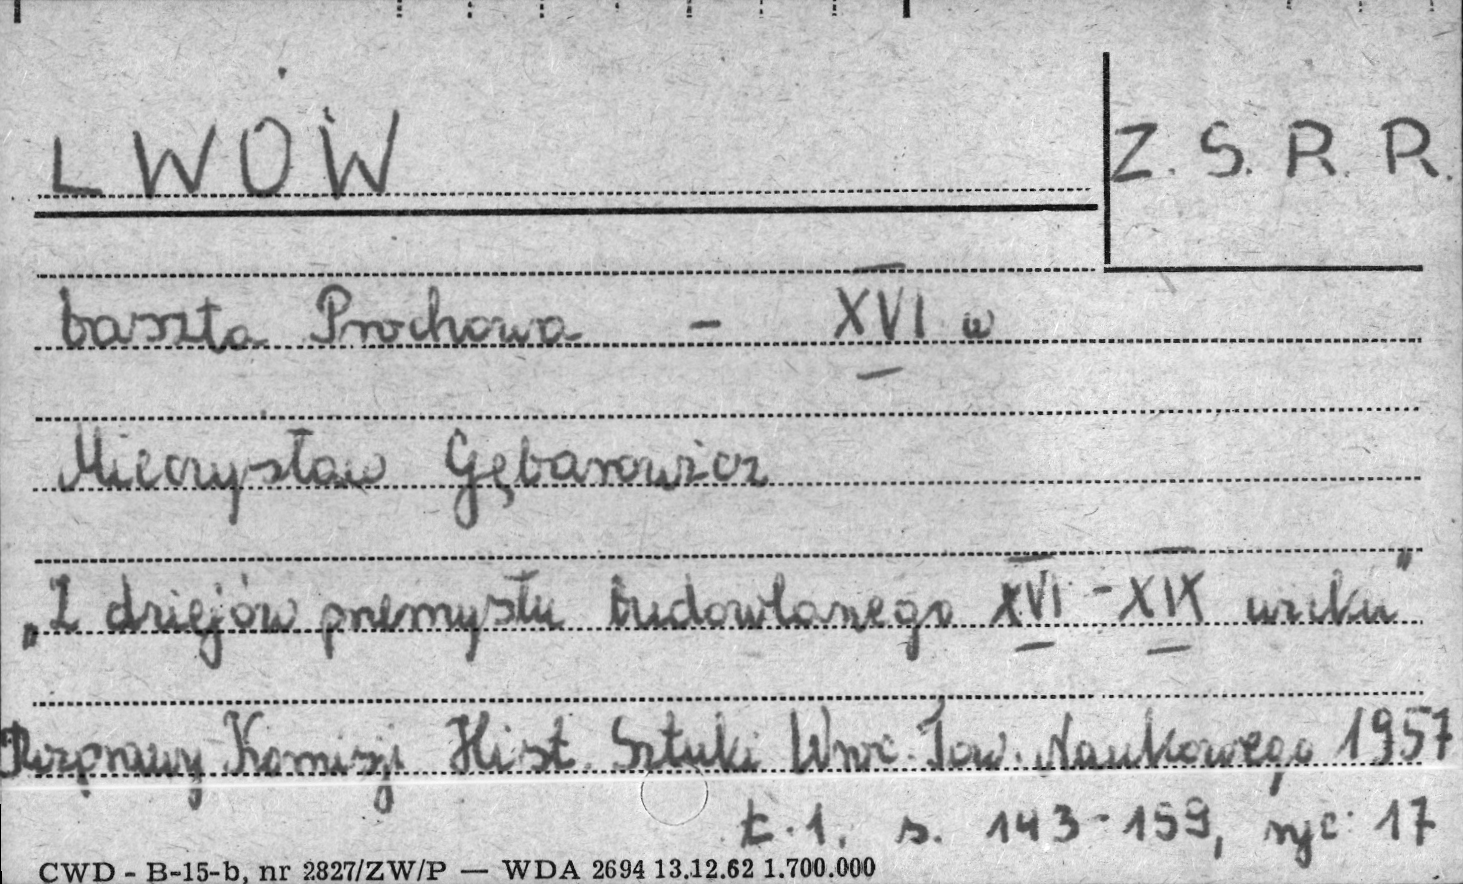 LWÓW
Z.S.R.R.
baszta Prochowa - XVI w
Mieczysław Gębarowicz
„Z dziejów przemysłu budowlanego XVI - XIX wieku"
Rozprawy Komisji Hist. Sztuki Wroc. Tow. Naukowego 1957
t.1. s. 143-159, ryc. 17
CWD - B-15-b, nr 2827/ZW/P — WDA 2694 13.12.62 1.700.000